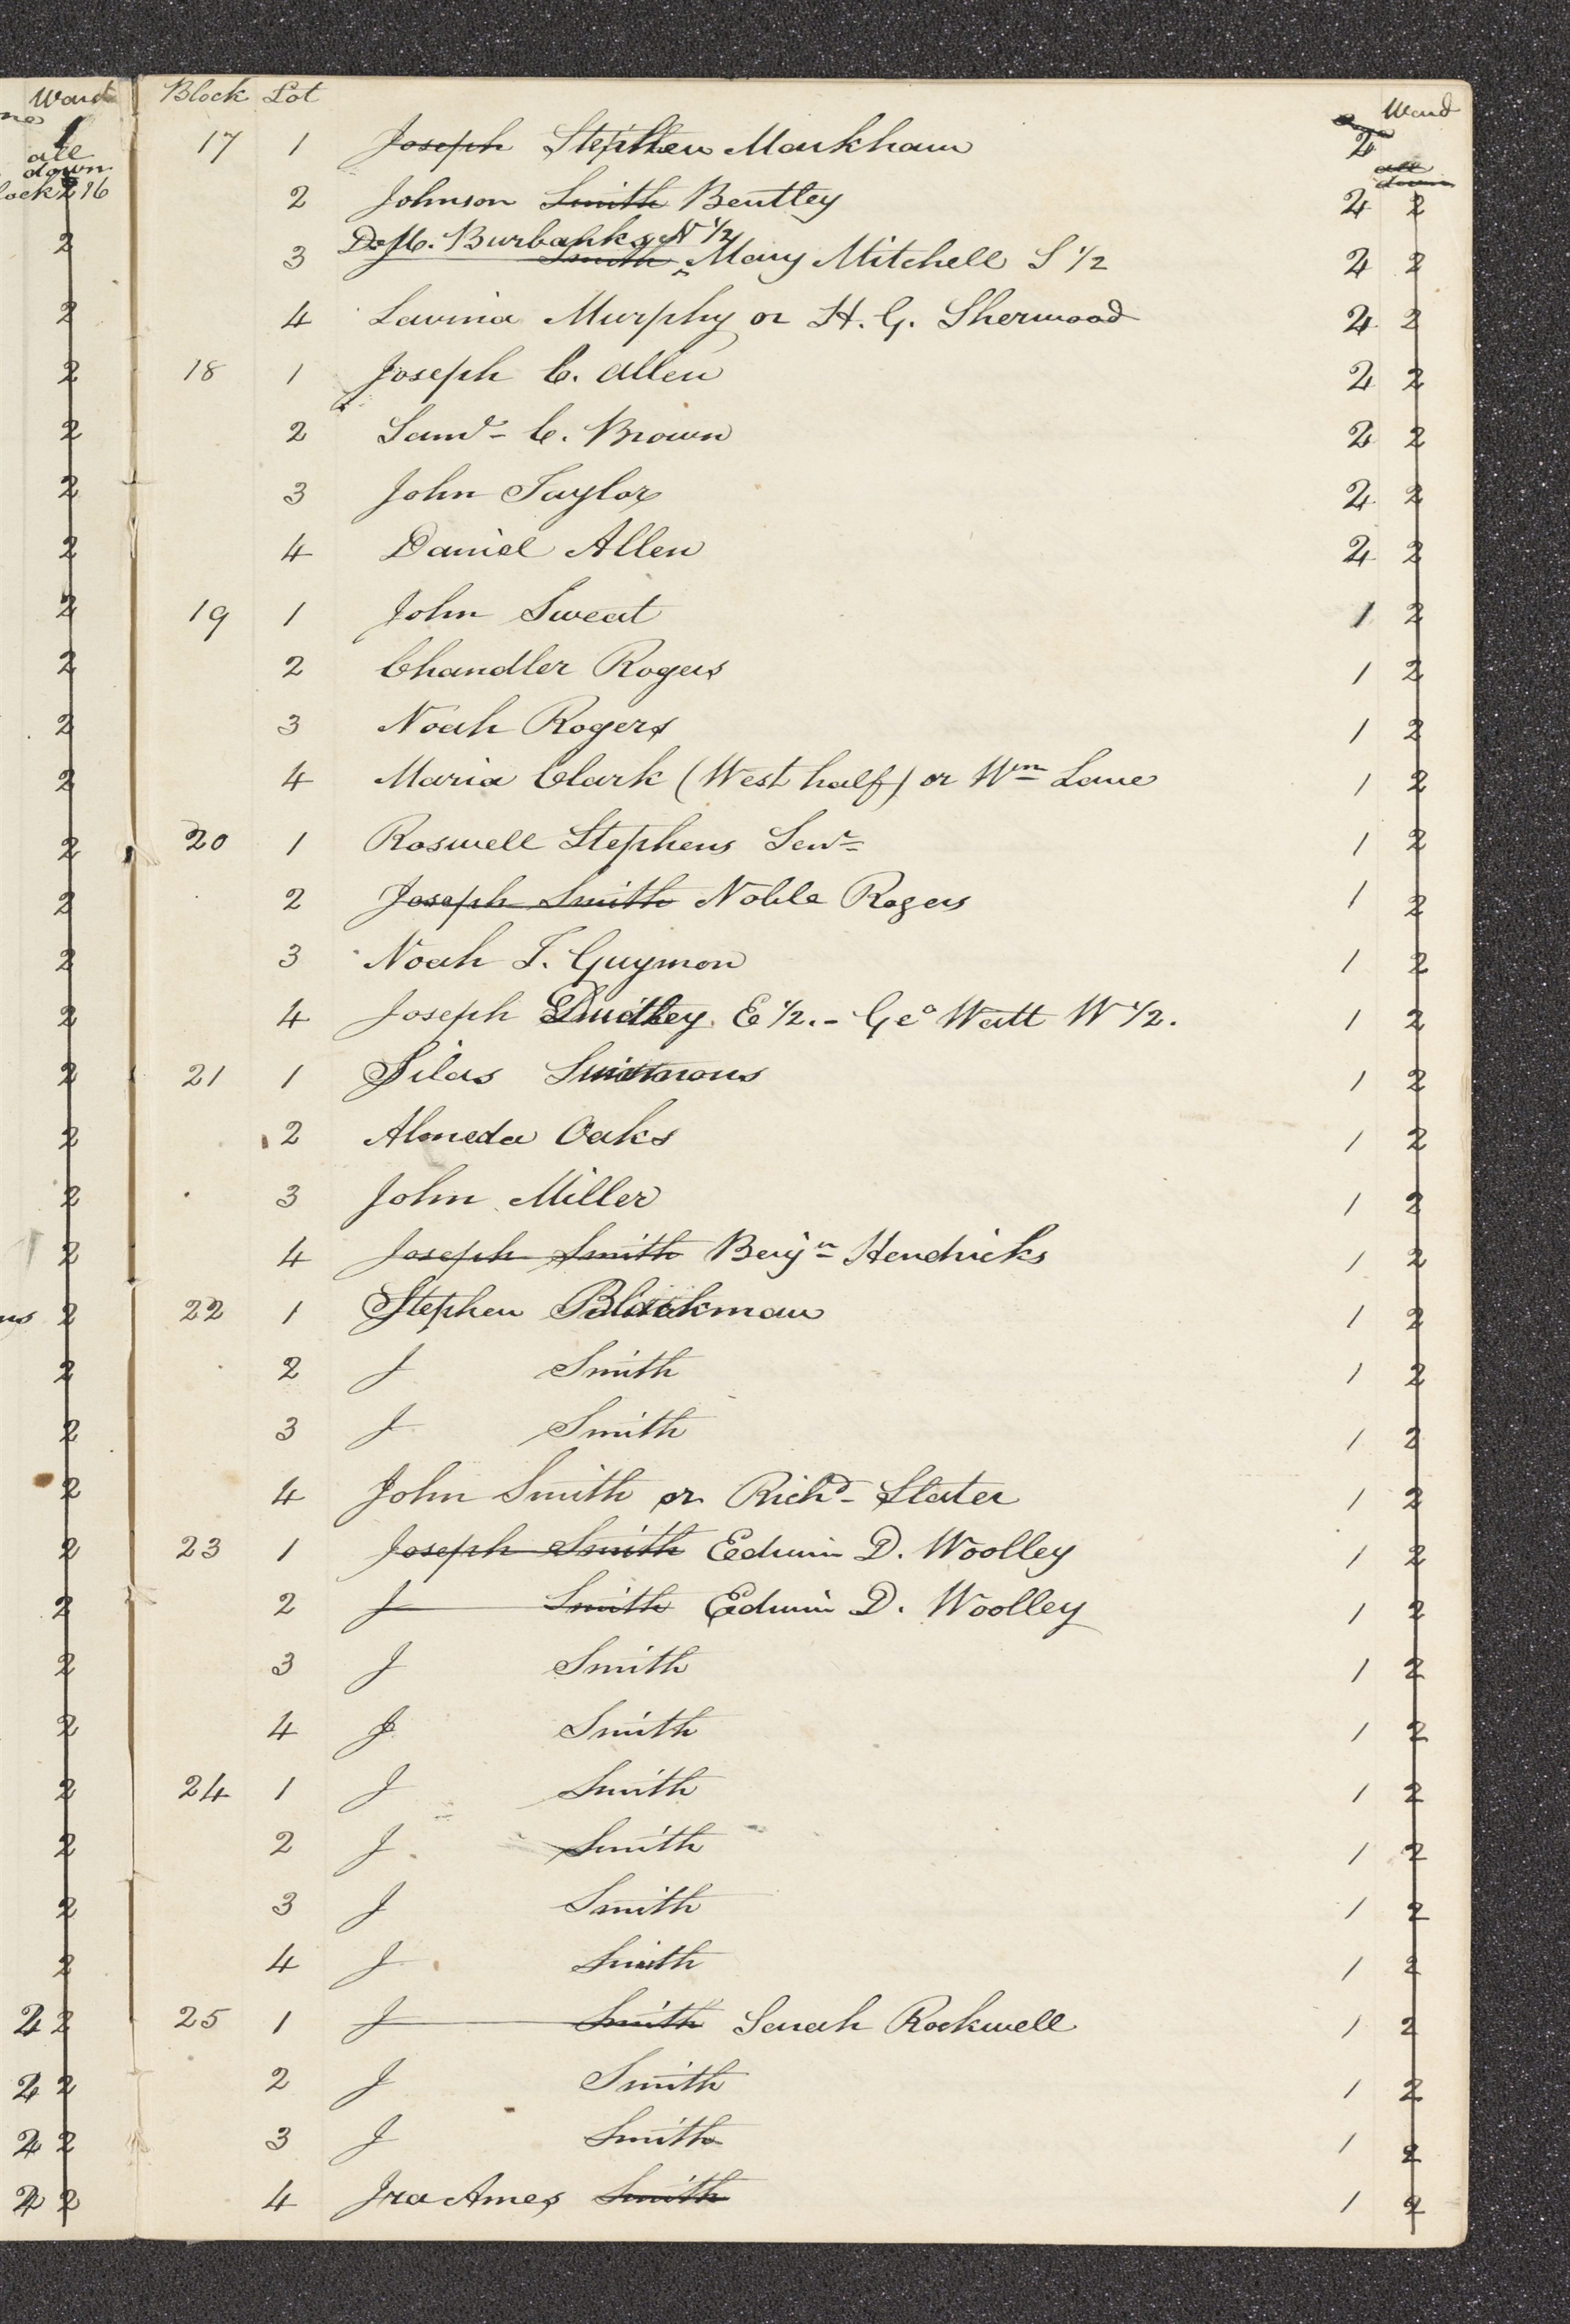 Ward Block Lot Ward
1
all
down
17 1 Joseph Stephen Markham 2
all
down
2 Johnson Smith Bentley 2 2
D. M. Burbanks N 1/2
3 Smith Mary Mitchell S 1/2 2 2
4 Lavina Murphy or H. G. Sherwood 2 2
18 1 Joseph C. Allen 2 2
2 Saml. C. Brown 2 2
3 John Taylor 2 2
4 Daniel Allen 2 2
19 1 John Sweat 1 2
2 Chandler Rogers 1 2
3 Noah Rogers 1 2
4 Maria Clark (West half) or Wm Lane 1 2
20 1 Roswell Stephens Senr 1 2
2 Joseph Smith Noble Rogers 1 2
3 Noah T. Guymon 1 2
4 Joseph Dudley E 1/2. - Geo Watt W 1/2. 1 2
21 1 Silas Simmons 1 2
2 Almeda Oaks 1 2
3 John Miller 1 2
4 Joseph Smith Benjn Hendricks 1 2
22 1 Stephen Blackman 1 2
2 J Smith 1 2
3 J Smith 1 2
4 John Smith or Richd Slater 1 2
23 1 Joseph Smith Edwin D. Woolley 1 2
2 J Smith Edwin D. Woolley 1 2
3 J Smith 1 2
4 J Smith 1 2
24 1 J Smith 1 2
2 J Smith 1 2
3 J Smith 1 2
4 J Smith 1 2
25 1 J Smith Sarah Rockwell 1 2
2 J Smith 1 2
3 J Smith 1 2
4 Ira Ames Smith 1 2